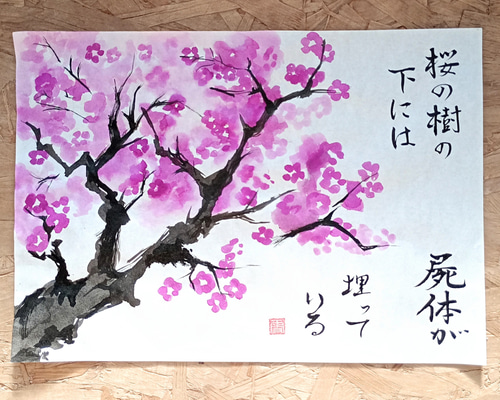 桜の樹の
下には
屍体が
埋って
いる